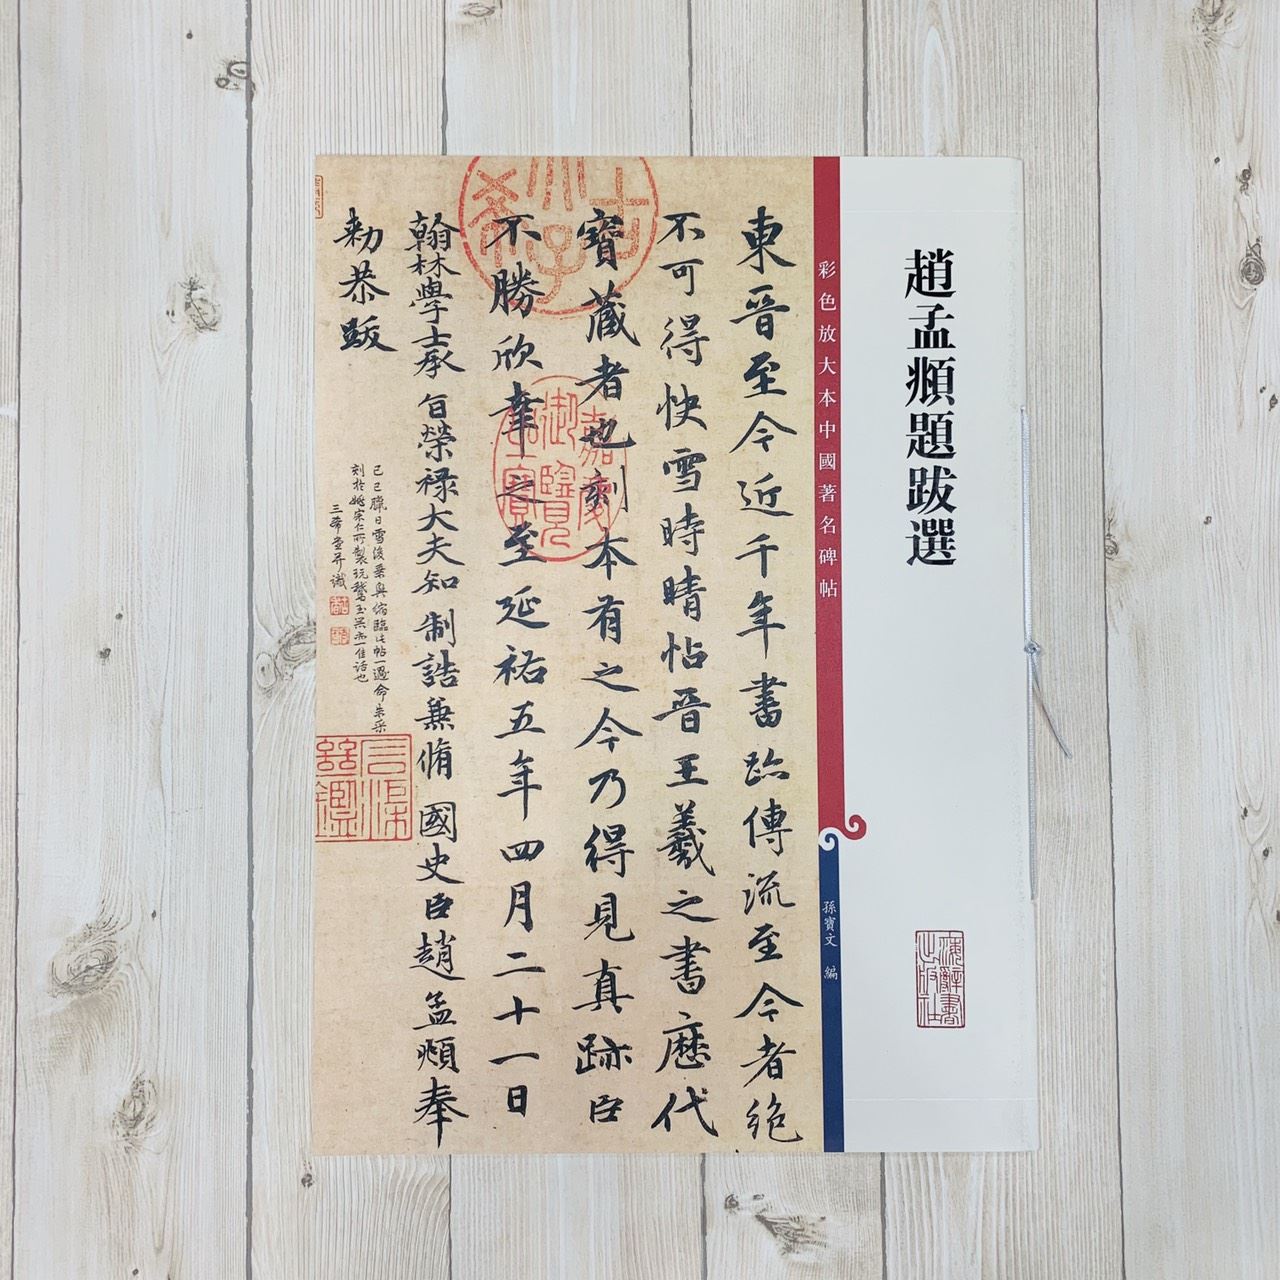 趙孟頫題跋選
彩色放大本中國著名碑帖
孫寶文 編
海辭書
出版社
東晉至今近千年書跡傳流至今者絶
不可得快雪時晴帖晉王羲之書歷代
寶藏者也刻本有之今乃得見真跡臣
不勝欣幸之至延祐五年四月二十一日
翰林學士承旨榮禄大夫知制誥兼脩國史臣趙孟頫奉
勑恭跋
己巳臘日雪後乘興偶臨此帖一過命朱采
刻於姚宗仁所製玩鵞玉器亦一佳話也
三希堂并識
嘉慶
御覽
之寶